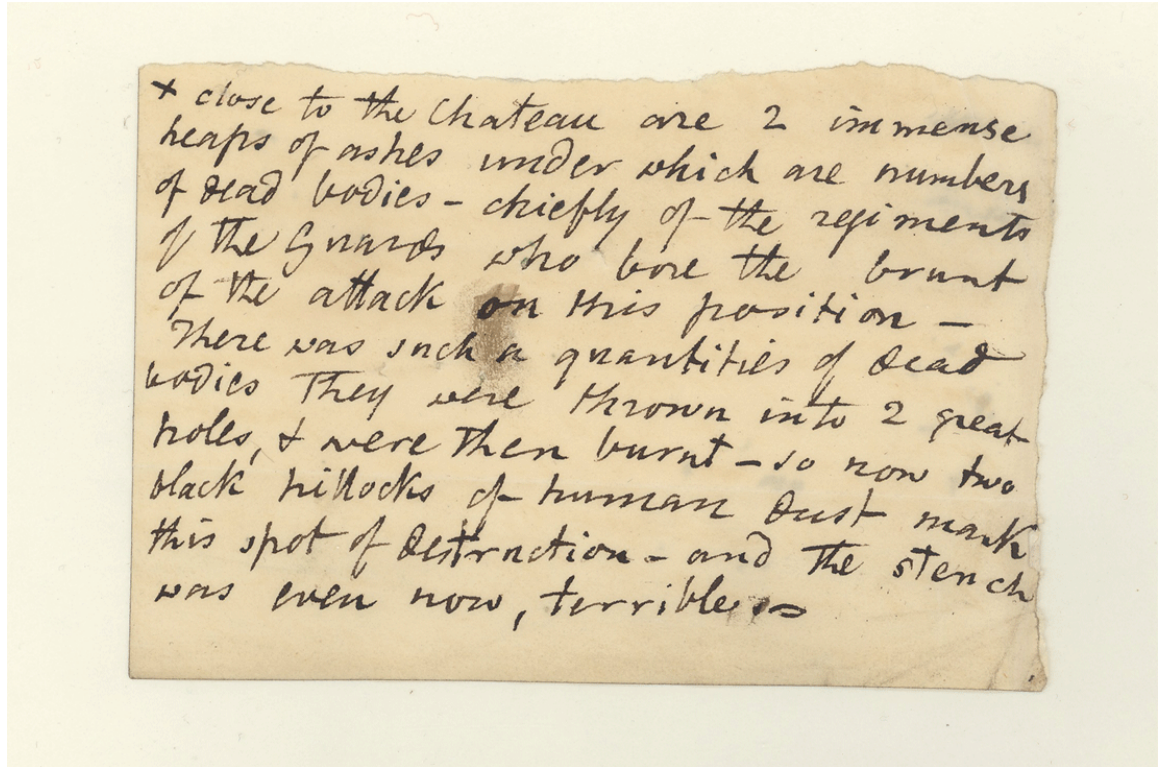 + close to the Chateau are 2 immense
heaps of ashes under which are numbers
of dead bodies - chiefly of the regiments
of the Guards who bore the brunt
of the attack on this position -
There was such a quantities of dead
bodies They were thrown into 2 great
holes, & were then burnt - so now two
black hillocks of human dust mark
this spot of destruction - and the stench
was even now, terrible